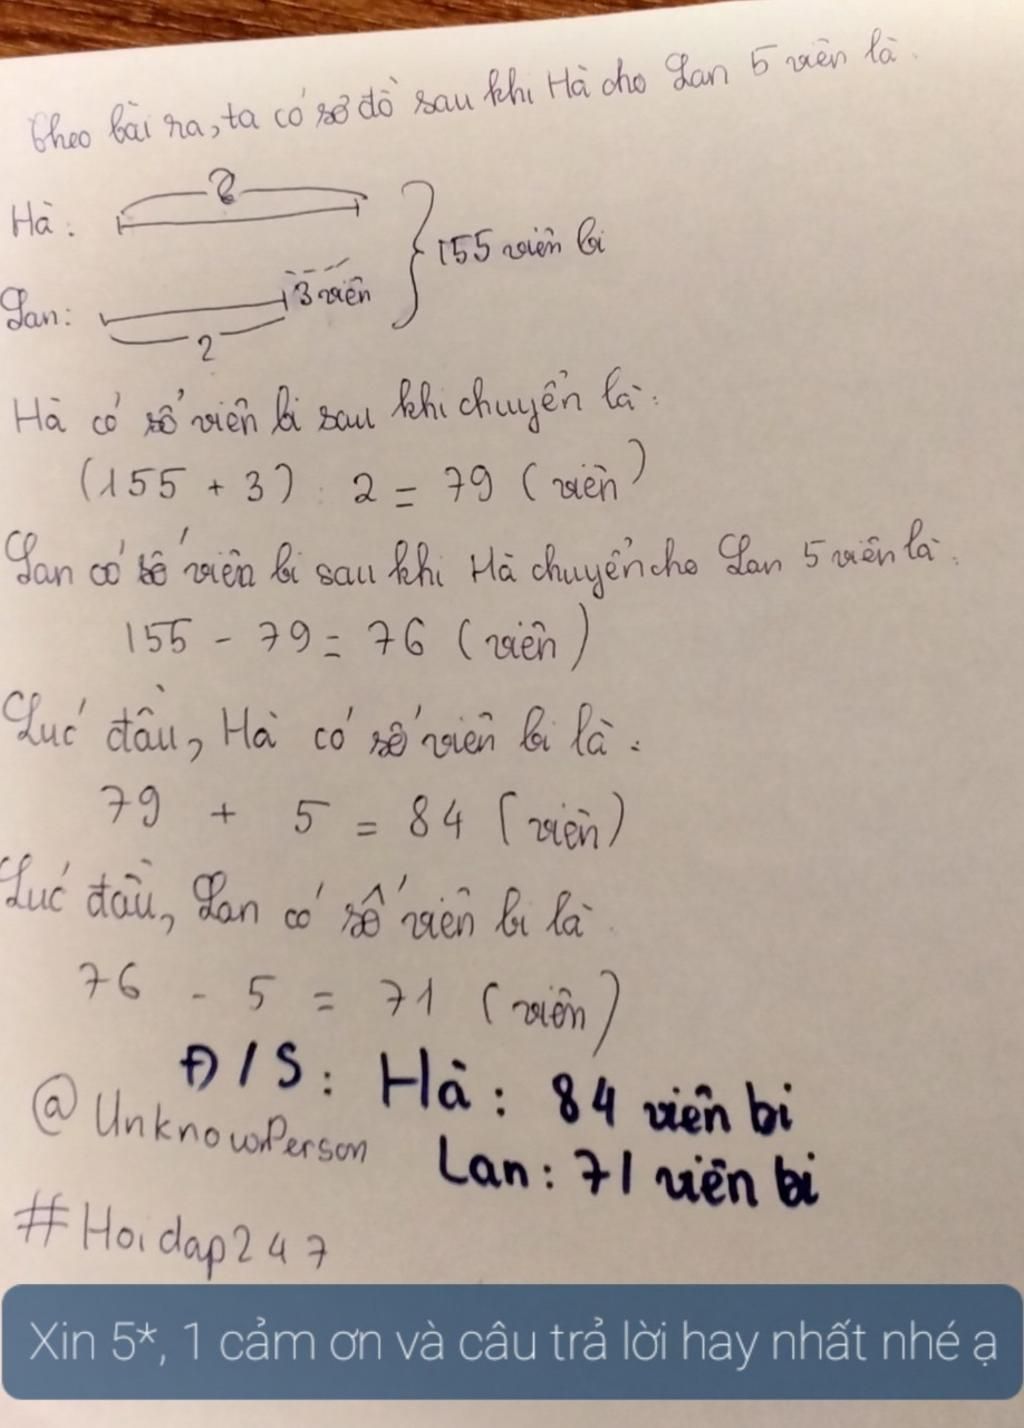 Theo bài ra, ta có sơ đồ sau khi Hà cho Lan 5 viên là.
?
Hà:
155 viên bi
3 viên
Lan:
?
Hà có số viên bi sau khi chuyển là:
(155 + 3) : 2 = 79 (viên)
Lan có số viên bi sau khi Hà chuyển cho Lan 5 viên là:
155 - 79 = 76 (viên)
Lúc đầu, Hà có số viên bi là:
79 + 5 = 84 (viên)
Lúc đầu, Lan có số viên bi là
76 - 5 = 71 (viên)
Đ/S: Hà: 84 viên bi
@UnknowPerson
Lan: 71 viên bi
#Hoidap247
Xin 5*, 1 cảm ơn và câu trả lời hay nhất nhé ạ